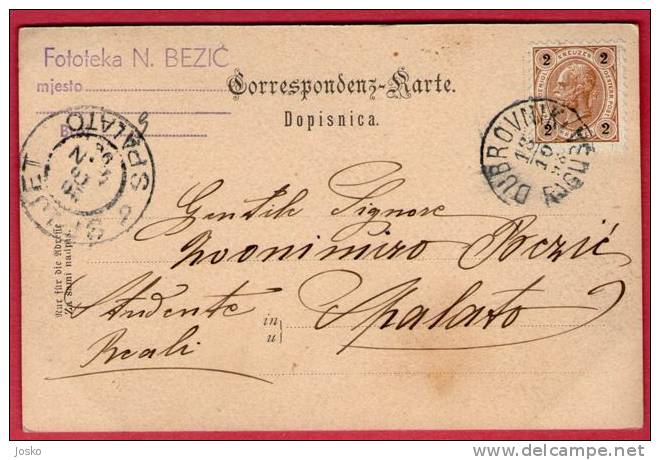 Fototeka N. BEZIĆ
mjesto
B
Correspondenz-Karte.
Dopisnica.
2 KREUZER 2
2 2
DUBROVNIK
RAGUSA
SPALATO
SPLJET
Gentile Signore
Zvonimiro Bezić
Studente
in
u
Spalato
Reali
Nur für die Adresse
Za sami nadpis.
Josko
delcampe.net